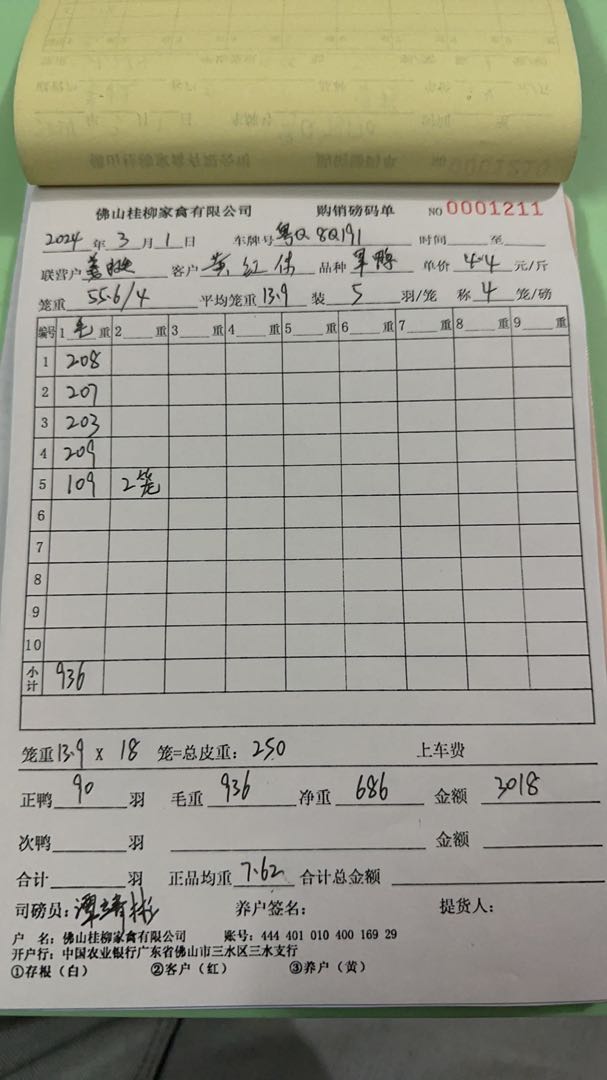 佛山桂柳家禽有限公司 购销磅码单 NO 0001211
2024 年 3 月 1 日 车牌号 粤Q 8Q191 时间 至
联营户 客户 黄红伟 品种 单价 4.4 元/斤
笼重 55.6/4 平均笼重 13.9 装 5 羽/笼 称 4 笼/磅
编号 1 毛 重 2 重 3 重 4 重 5 重 6 重 7 重 8 重 9 重
1 208
2 207
3 203
4 209
5 109 2笼
6
7
8
9
10
小计 936
笼重 13.9 x 18 笼=总皮重: 250 上车费
正鸭 90 羽 毛重 936 净重 686 金额 3018
次鸭 羽 金额
合计 羽 正品均重 7.62 合计总金额
司磅员: 养户签名: 提货人:
户 名: 佛山桂柳家禽有限公司 账号: 444 401 010 400 169 29
开户行: 中国农业银行广东省佛山市三水区三水支行
①存根（白） ②客户（红） ③养户（黄）